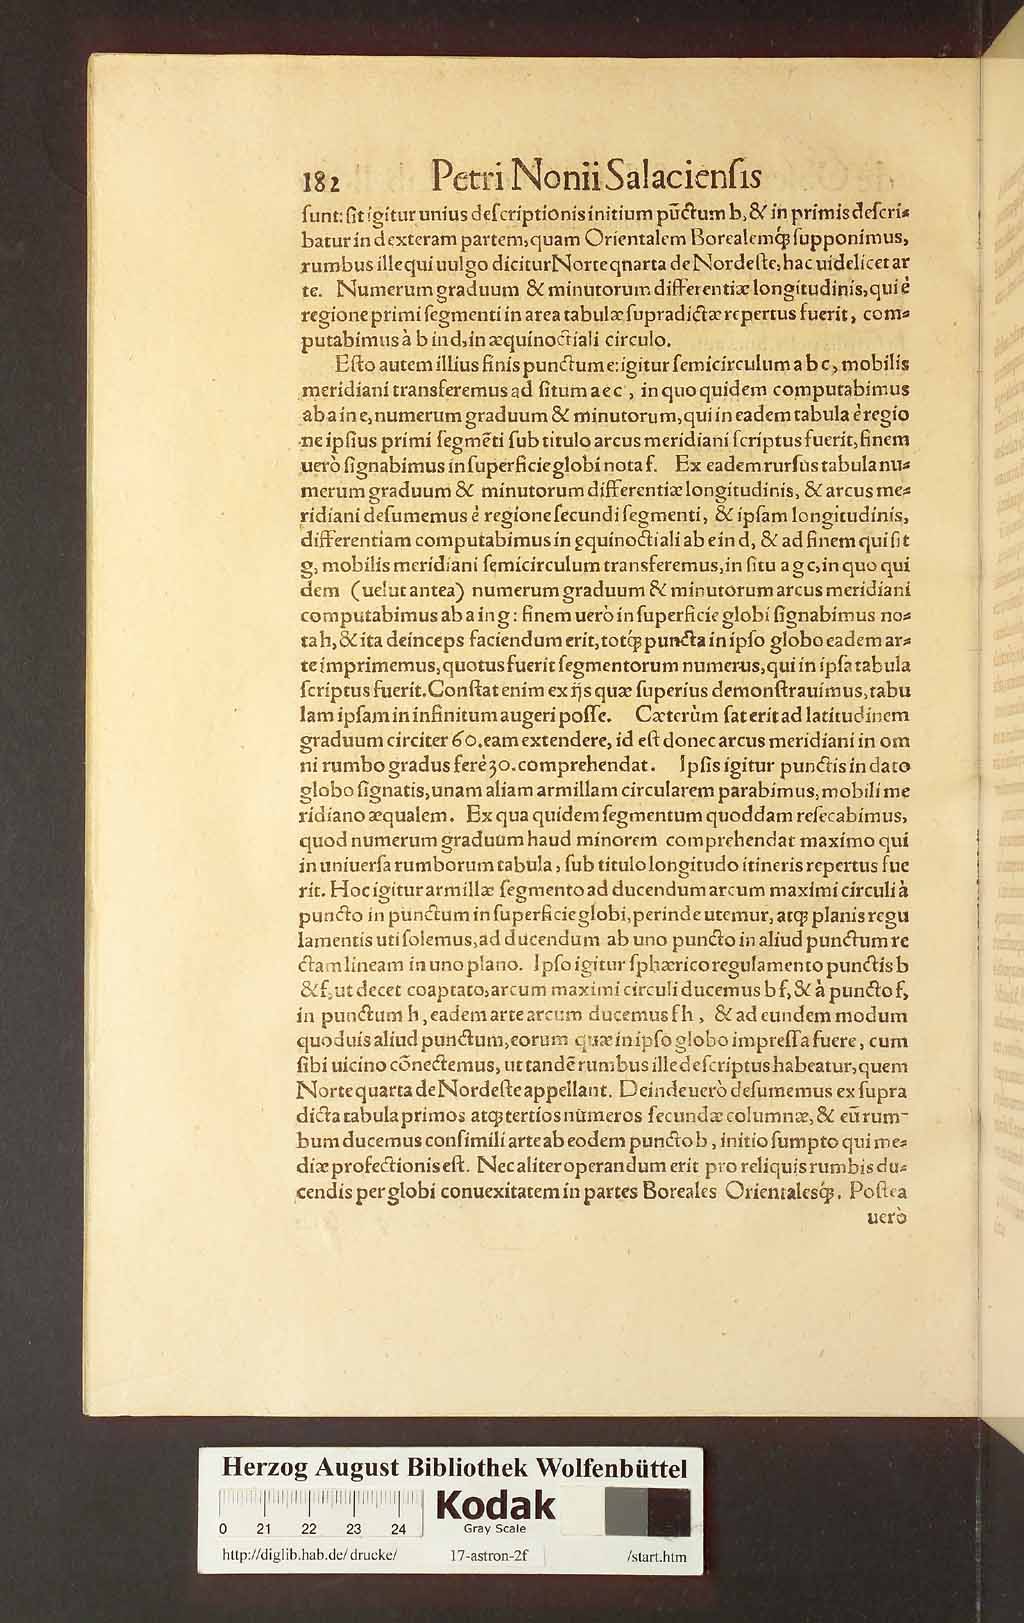 182 Petri Nonii Salaciensis
sunt: sit igitur unius descriptionis initium pūctum b, & in primis descri-
batur in dexteram partem, quam Orientalem Borealemq́; supponimus,
rumbus ille qui uulgo dicitur Norte qnarta de Nordeste, hac uidelicet ar
te. Numerum graduum & minutorum differentiæ longitudinis, qui è
regione primi segmenti in area tabulæ supradictæ repertus fuerit, com-
putabimus à b in d, in æquinoctiali circulo.
Esto autem illius finis punctum e: igitur semicirculum a b c, mobilis
meridiani transferemus ad situm a e c, in quo quidem computabimus
ab a in e, numerum graduum & minutorum, qui in eadem tabula è regio
ne ipsius primi segmēti sub titulo arcus meridiani scriptus fuerit, finem
uerò signabimus in superficie globi nota f. Ex eadem rursus tabula nu-
merum graduum & minutorum differentiæ longitudinis, & arcus me-
ridiani desumemus è regione secundi segmenti, & ipsam longitudinis,
differentiam computabimus in ęquinoctiali ab e in d, & ad finem qui sit
g, mobilis meridiani semicirculum transferemus, in situ a g c, in quo qui
dem (uelut antea) numerum graduum & minutorum arcus meridiani
computabimus ab a in g: finem uerò in superficie globi signabimus no-
ta h, & ita deinceps faciendum erit, totq́; puncta in ipso globo eadem ar-
te imprimemus, quotus fuerit segmentorum numerus, qui in ipsa tabula
scriptus fuerit. Constat enim ex ijs quæ superius demonstrauimus, tabu
lam ipsam in infinitum augeri posse. Cæterùm sat erit ad latitudinem
graduum circiter 60. eam extendere, id est donec arcus meridiani in om
ni rumbo gradus ferè 30. comprehendat. Ipsis igitur punctis in dato
globo signatis, unam aliam armillam circularem parabimus, mobili me
ridiano æqualem. Ex qua quidem segmentum quoddam resecabimus,
quod numerum graduum haud minorem comprehendat maximo qui
in uniuersa rumborum tabula, sub titulo longitudo itineris repertus fue
rit. Hoc igitur armillæ segmento ad ducendum arcum maximi circuli à
puncto in punctum in superficie globi, perinde utemur, atq; planis regu
lamentis uti solemus, ad ducendum ab uno puncto in aliud punctum re
ctam lineam in uno plano. Ipso igitur sphærico regulamento punctis b
& f, ut decet coaptato, arcum maximi circuli ducemus b f, & à puncto f,
in punctum h, eadem arte arcum ducemus f h, & ad eundem modum
quoduis aliud punctum, eorum quæ in ipso globo impressa fuere, cum
sibi uicino cōnectemus, ut tandē rumbus ille descriptus habeatur, quem
Norte quarta de Nordeste appellant. Deinde uerò desumemus ex supra
dicta tabula primos atq; tertios numeros secundæ columnæ, & eū rum-
bum ducemus consimili arte ab eodem puncto b, initio sumpto qui me-
diæ profectionis est. Nec aliter operandum erit pro reliquis rumbis du-
cendis per globi conuexitatem in partes Boreales Orientalesq́;. Postea
uerò
Herzog August Bibliothek Wolfenbüttel
Kodak
Gray Scale
0 21 22 23 24
http://diglib.hab.de/drucke/ 17-astron-2f /start.htm